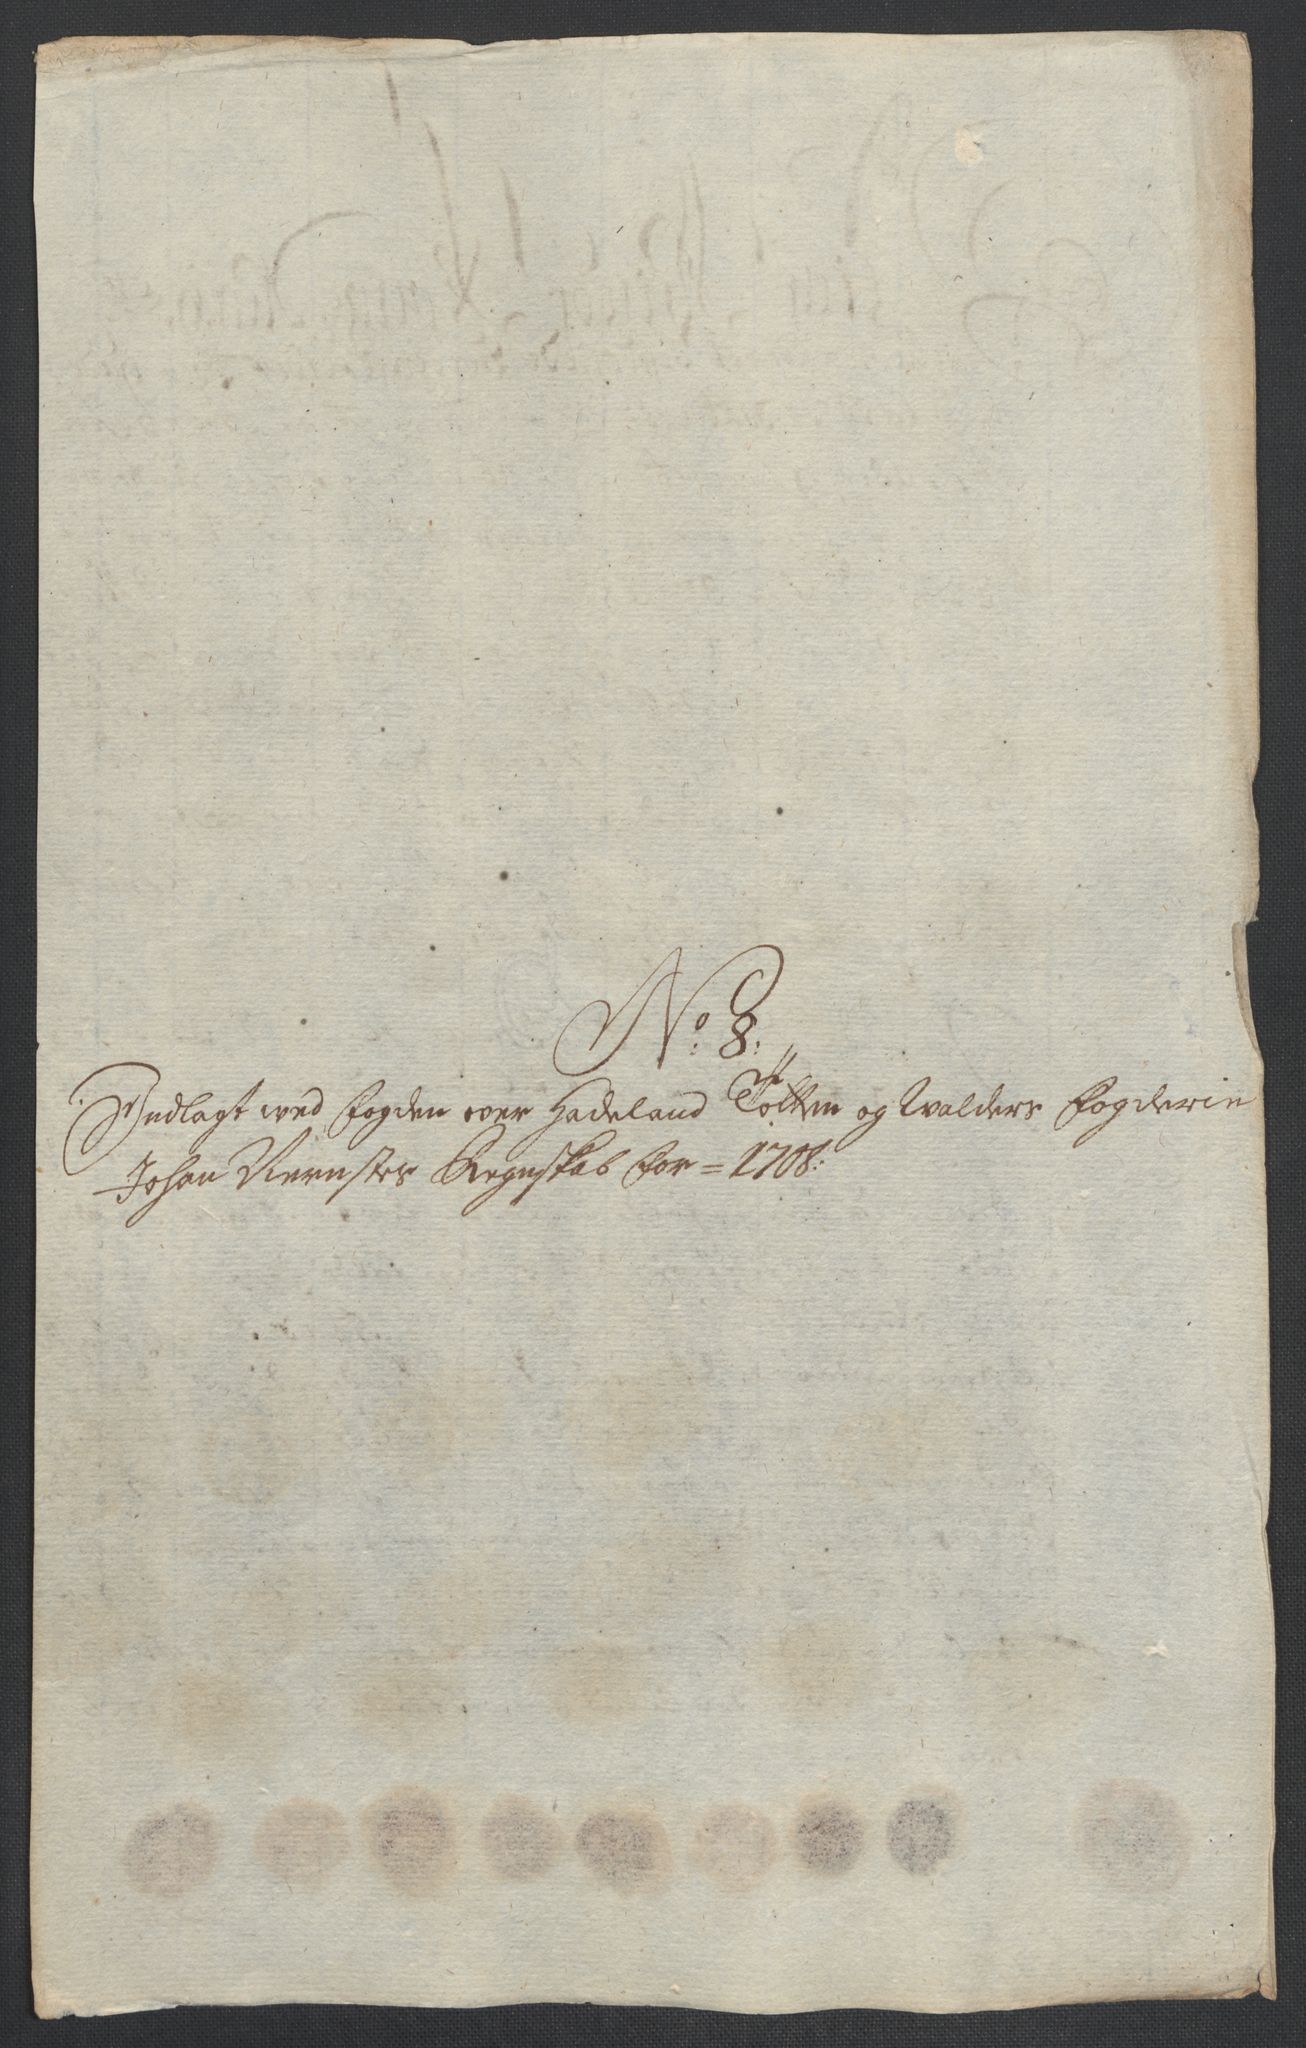 No: 8:
Indlagt wed fogden over Hadeland Totten og Walders fogderie
Johan Regnskab for = 1708: